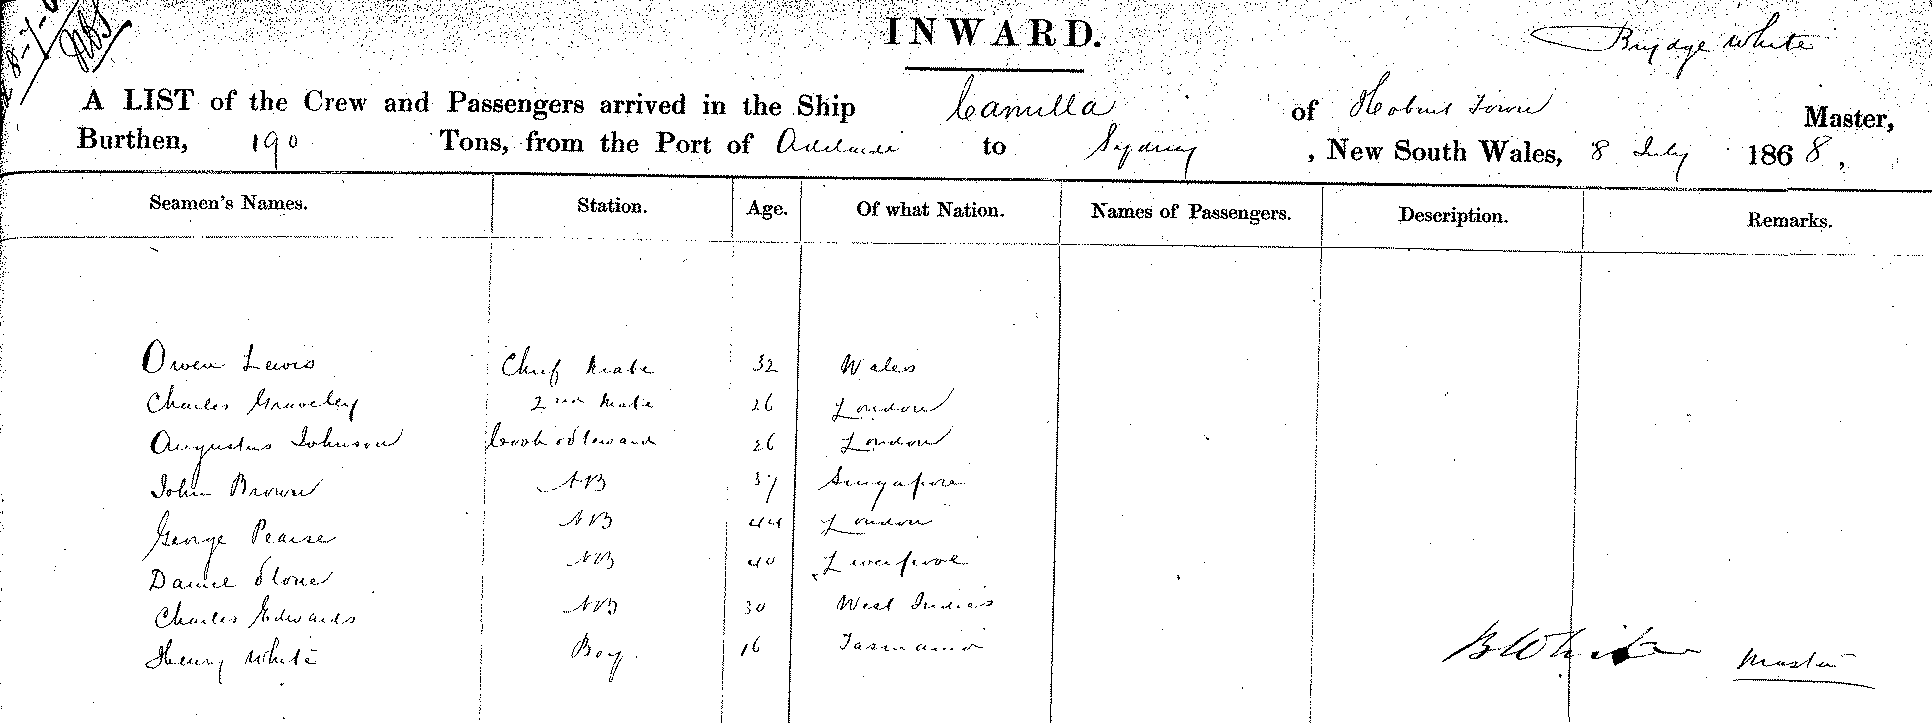 INWARD.
White
A LIST of the Crew and Passengers arrived in the Ship Camilla of Hobart Town Master,
Burthen, 190 Tons, from the Port of Adelaide to Sydney, New South Wales, 8 July 1868,
Seamen's Names. Station. Age. Of what Nation. Names of Passengers. Description. Remarks.
Owen Lewis Chief Mate 32 Wales
Charles Graveley 2nd Mate 26 London
Augustus Johnson Cook & Steward 26 London
John Brown AB 37 Singapore
George Pearse AB 44 London
Daniel Stone AB 40 Liverpool
Charles Edwards AB 30 West Indies
Henry White Boy. 16 Tasmania
B White Master